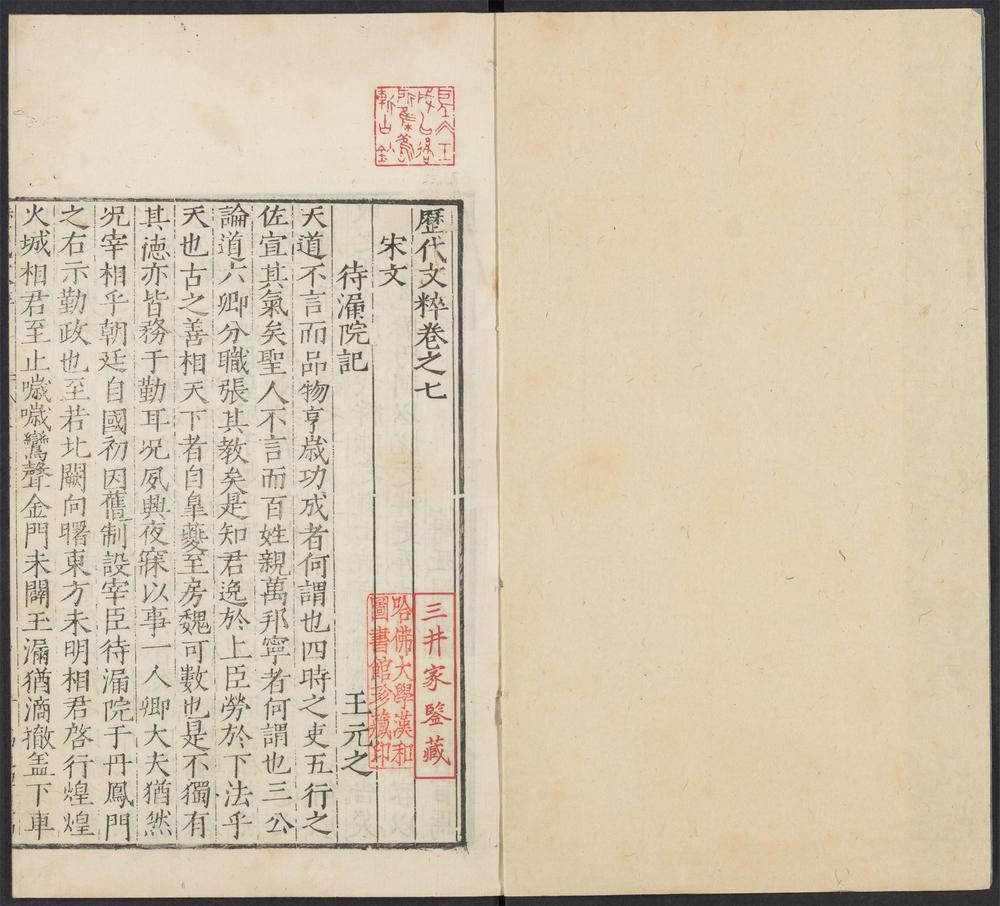 歷代文粹卷之七
宋文
待漏院記
王元之
天道不言而品物亨歲功成者何謂也四時之吏五行之
佐宣其氣矣聖人不言而百姓親萬邦寧者何謂也三公
論道六卿分職張其教矣是知君逸於上臣勞於下法乎
天也古之善相天下者自皐夔至房魏可數也是不獨有
其德亦皆務于勤耳况夙興夜寐以事一人卿大夫猶然
况宰相乎朝廷自國初因舊制設宰臣待漏院于丹鳳門
之右示勤政也至若北闕向曙東方未明相君啓行煌煌
火城相君至止噦噦鸞聲金門未闢玉漏猶滴撤盖下車
三井家鑒藏
哈佛大學漢和
圖書館珍藏印